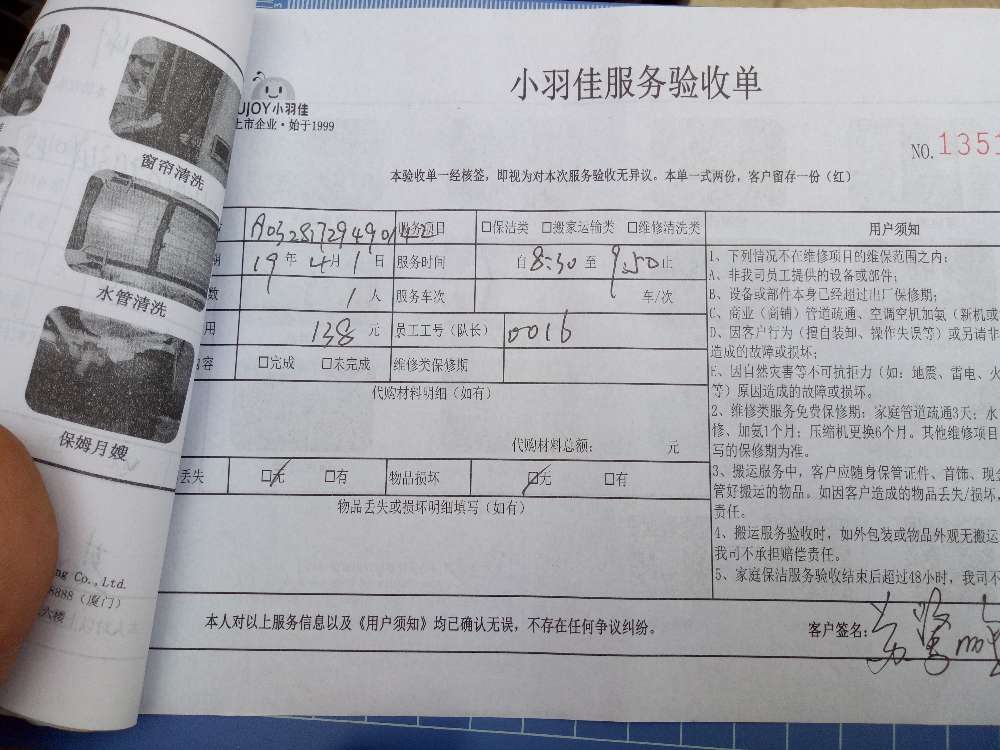 窗帘清洗
水管清洗
保姆月嫂
ng Co.,Ltd.
8888（厦门）
六楼
UJOY小羽佳
上市企业·始于1999
小羽佳服务验收单
NO.1351
本验收单一经核签，即视为对本次服务验收无异议。本单一式两份，客户留存一份（红）
服务项目 □保洁类 □搬家运输类 □维修清洗类
19年4月1日 服务时间 自8:30至9:50止
数 1人 服务车次 车/次
用 138元 员工工号（队长） 0016
容 □完成 □未完成 维修类保修期
代购材料明细（如有）
代购材料总额： 元
丢失 □无 □有 物品损坏 □无 □有
物品丢失或损坏明细填写（如有）
用户须知
1、下列情况不在维修项目的维保范围之内：
A、非我司员工提供的设备或部件；
B、设备或部件本身已经超过出厂保修期；
C、商业（商铺）管道疏通、空调窄机加氨（新机或
D、因客户行为（擅自装卸、操作失误等）或另请非
造成的故障或损坏；
E、因自然灾害等不可抗拒力（如：地震、雷电、火
等）原因造成的故障或损坏。
2、维修类服务免费保修期：家庭管道疏通3天；水
修、加氨1个月；压缩机更换6个月。其他维修项目
写的保修期为准。
3、搬运服务中，客户应随身保管证件、首饰、现金
管好搬运的物品。如因客户造成的物品丢失/损坏，
责任。
4、搬运服务验收时，如外包装或物品外观无搬运
我司不承担赔偿责任。
5、家庭保洁服务验收结束后超过48小时，我司不
本人对以上服务信息以及《用户须知》均已确认无误，不存在任何争议纠纷。
客户签名：